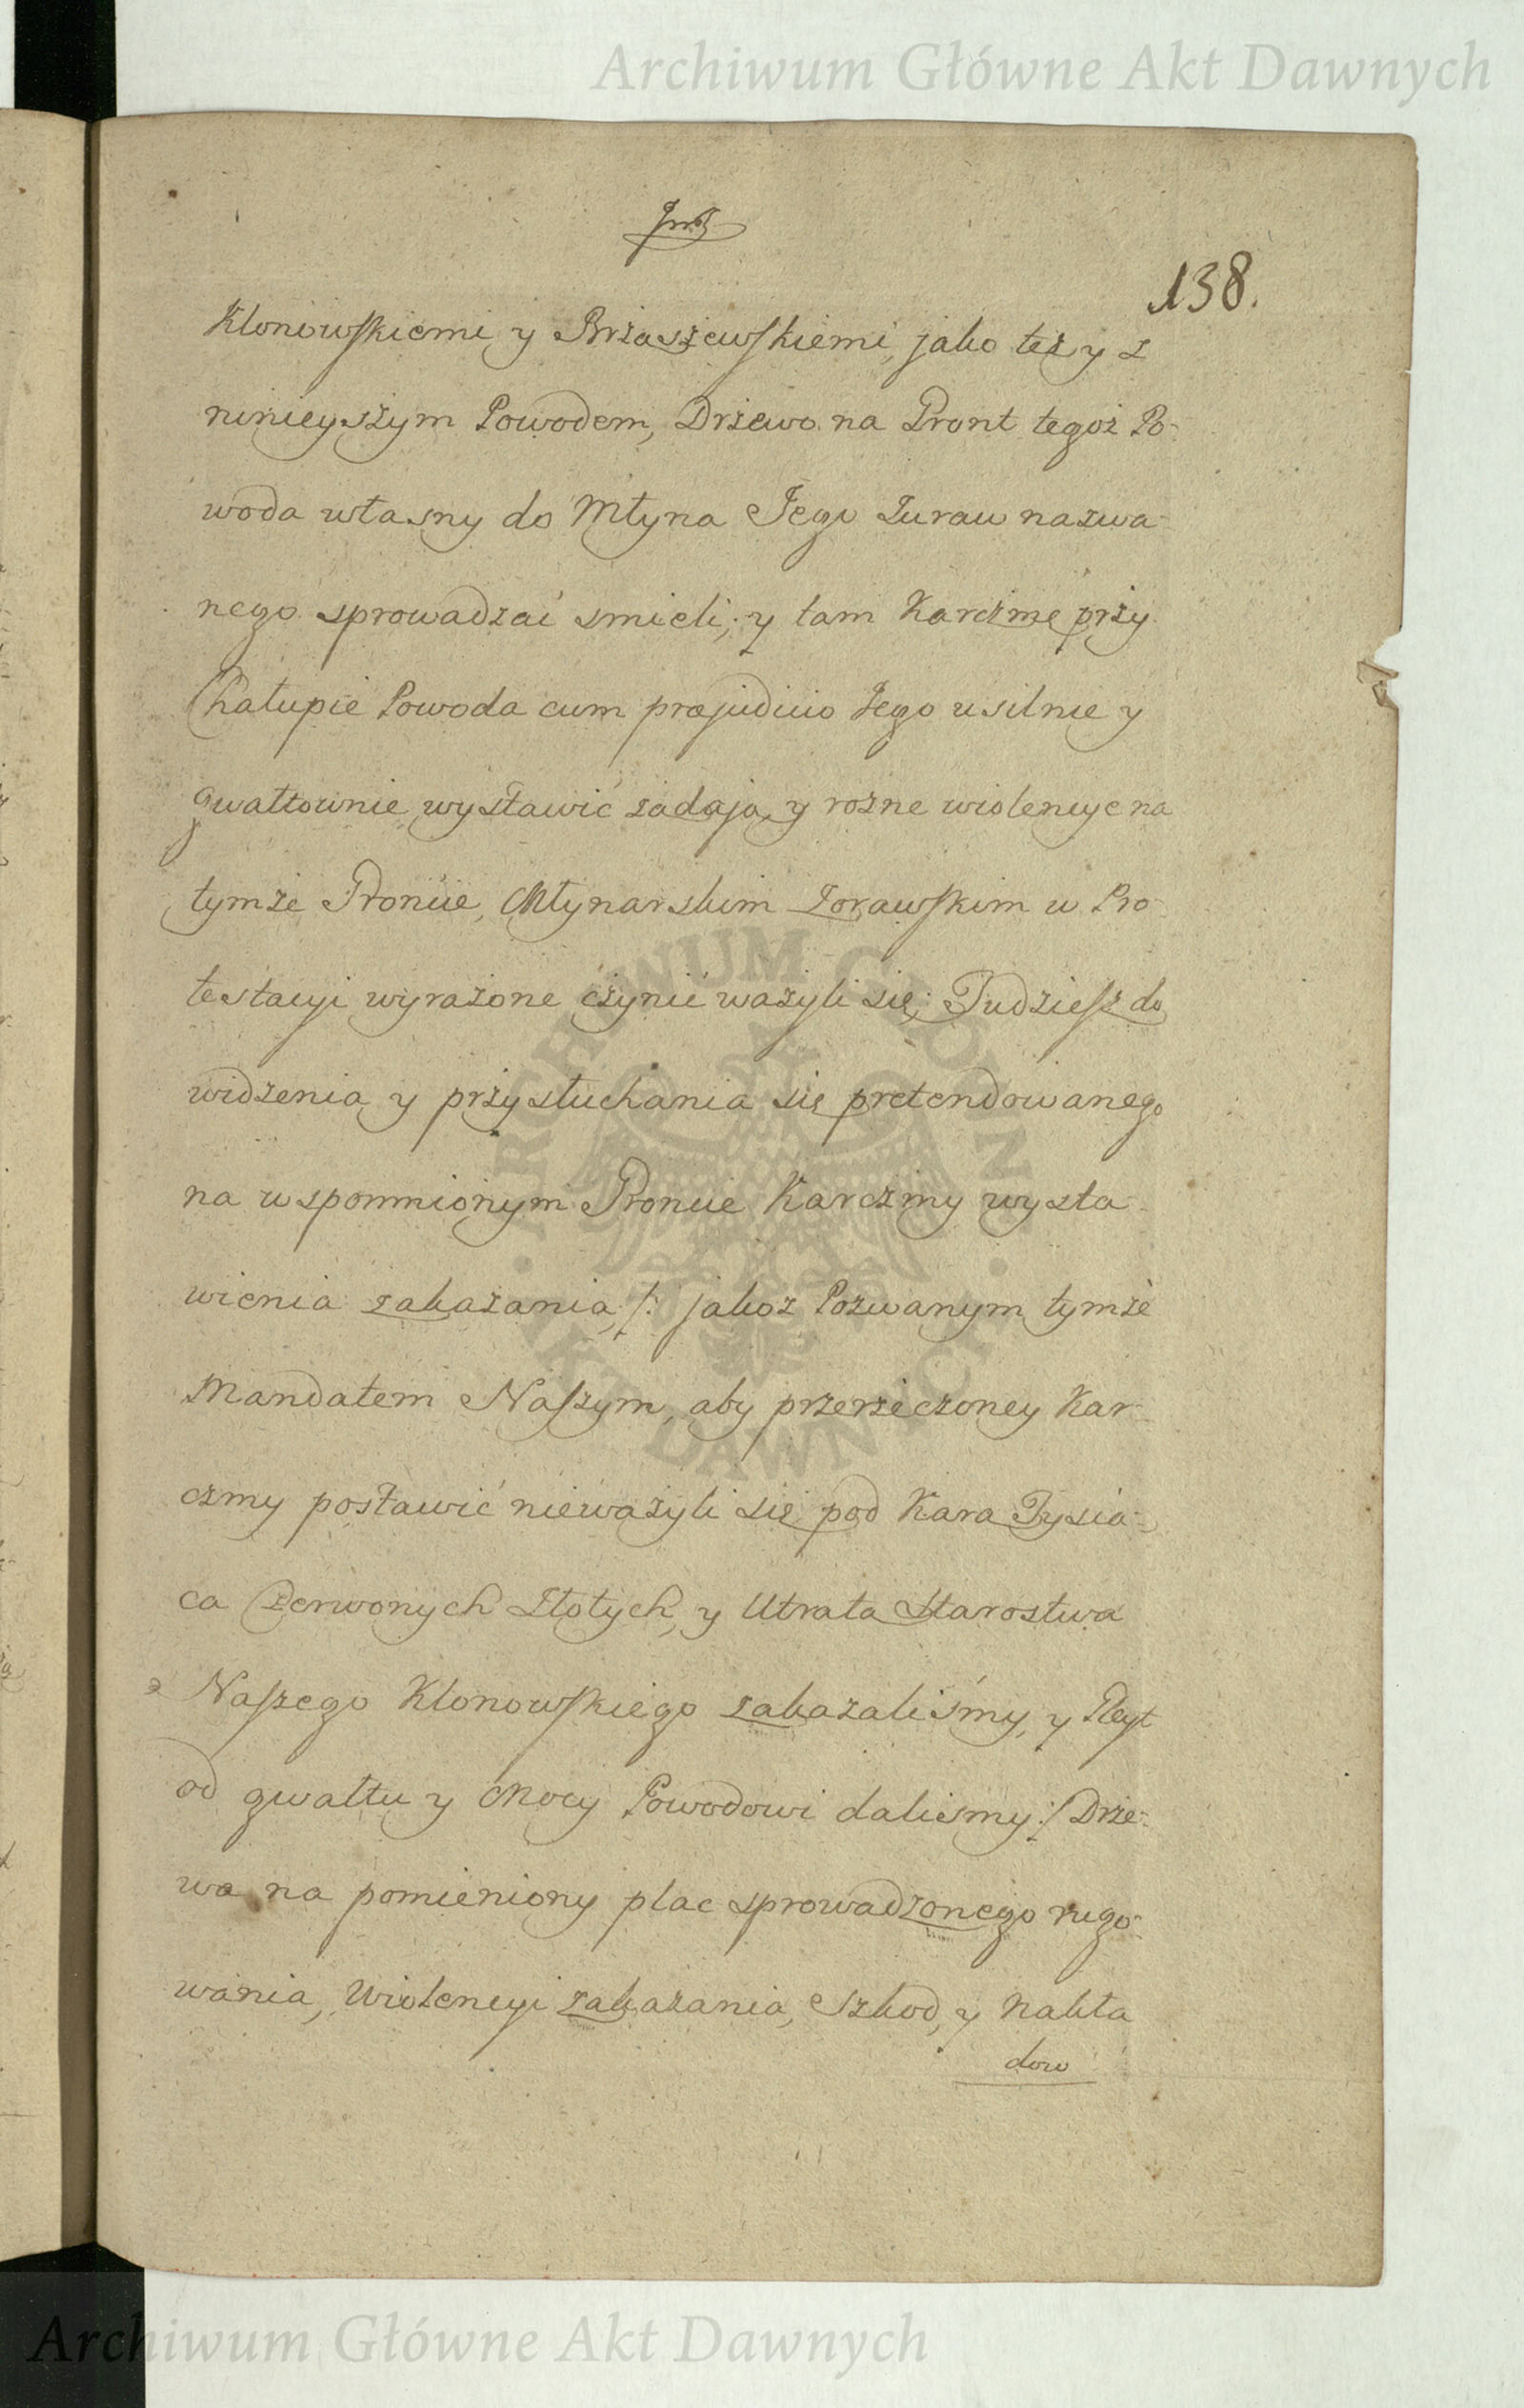 Archiwum Główne Akt Dawnych
138.
Klonowskiemi y Brząszewskiemi, jako też y z
ninieyszym Powodem, Drzewo na Gront tegoż Po-
woda własny do Młyna Jego Zuraw nazwa-
nego sprowadzać smieli; y tam Karczmę przy
Chałupie Powoda cum præjudicio Jego usilnie y
gwałtownie wystawić żądają, y rożne wiolencye na
tymże Groncie, Młynarskim Zorawskim w Pro-
testacyi wyrażone czynić ważyli się; Tudziesz do
widzenia y przysłuchania się pretendowanego
na wspomnionym Groncie Karczmy wysta-
wienia zakazania, /: jakoż Pozwanym tymże
Mandatem Naszym, aby przerzeczoney Kar-
czmy postawić nieważyli się pod Karą Tysią-
ca Czerwonych Złotych, y Utratą Starostwa
Naszego Klonowskiego zakazaliśmy, y Gleyt
od gwałtu y Mocy Powodowi daliśmy :/ Drze-
wa na pomieniony plac sprowadzonego rugo-
wania, Wiolencyi zakazania, Szkod, y Nakła
dow
Archiwum Główne Akt Dawnych